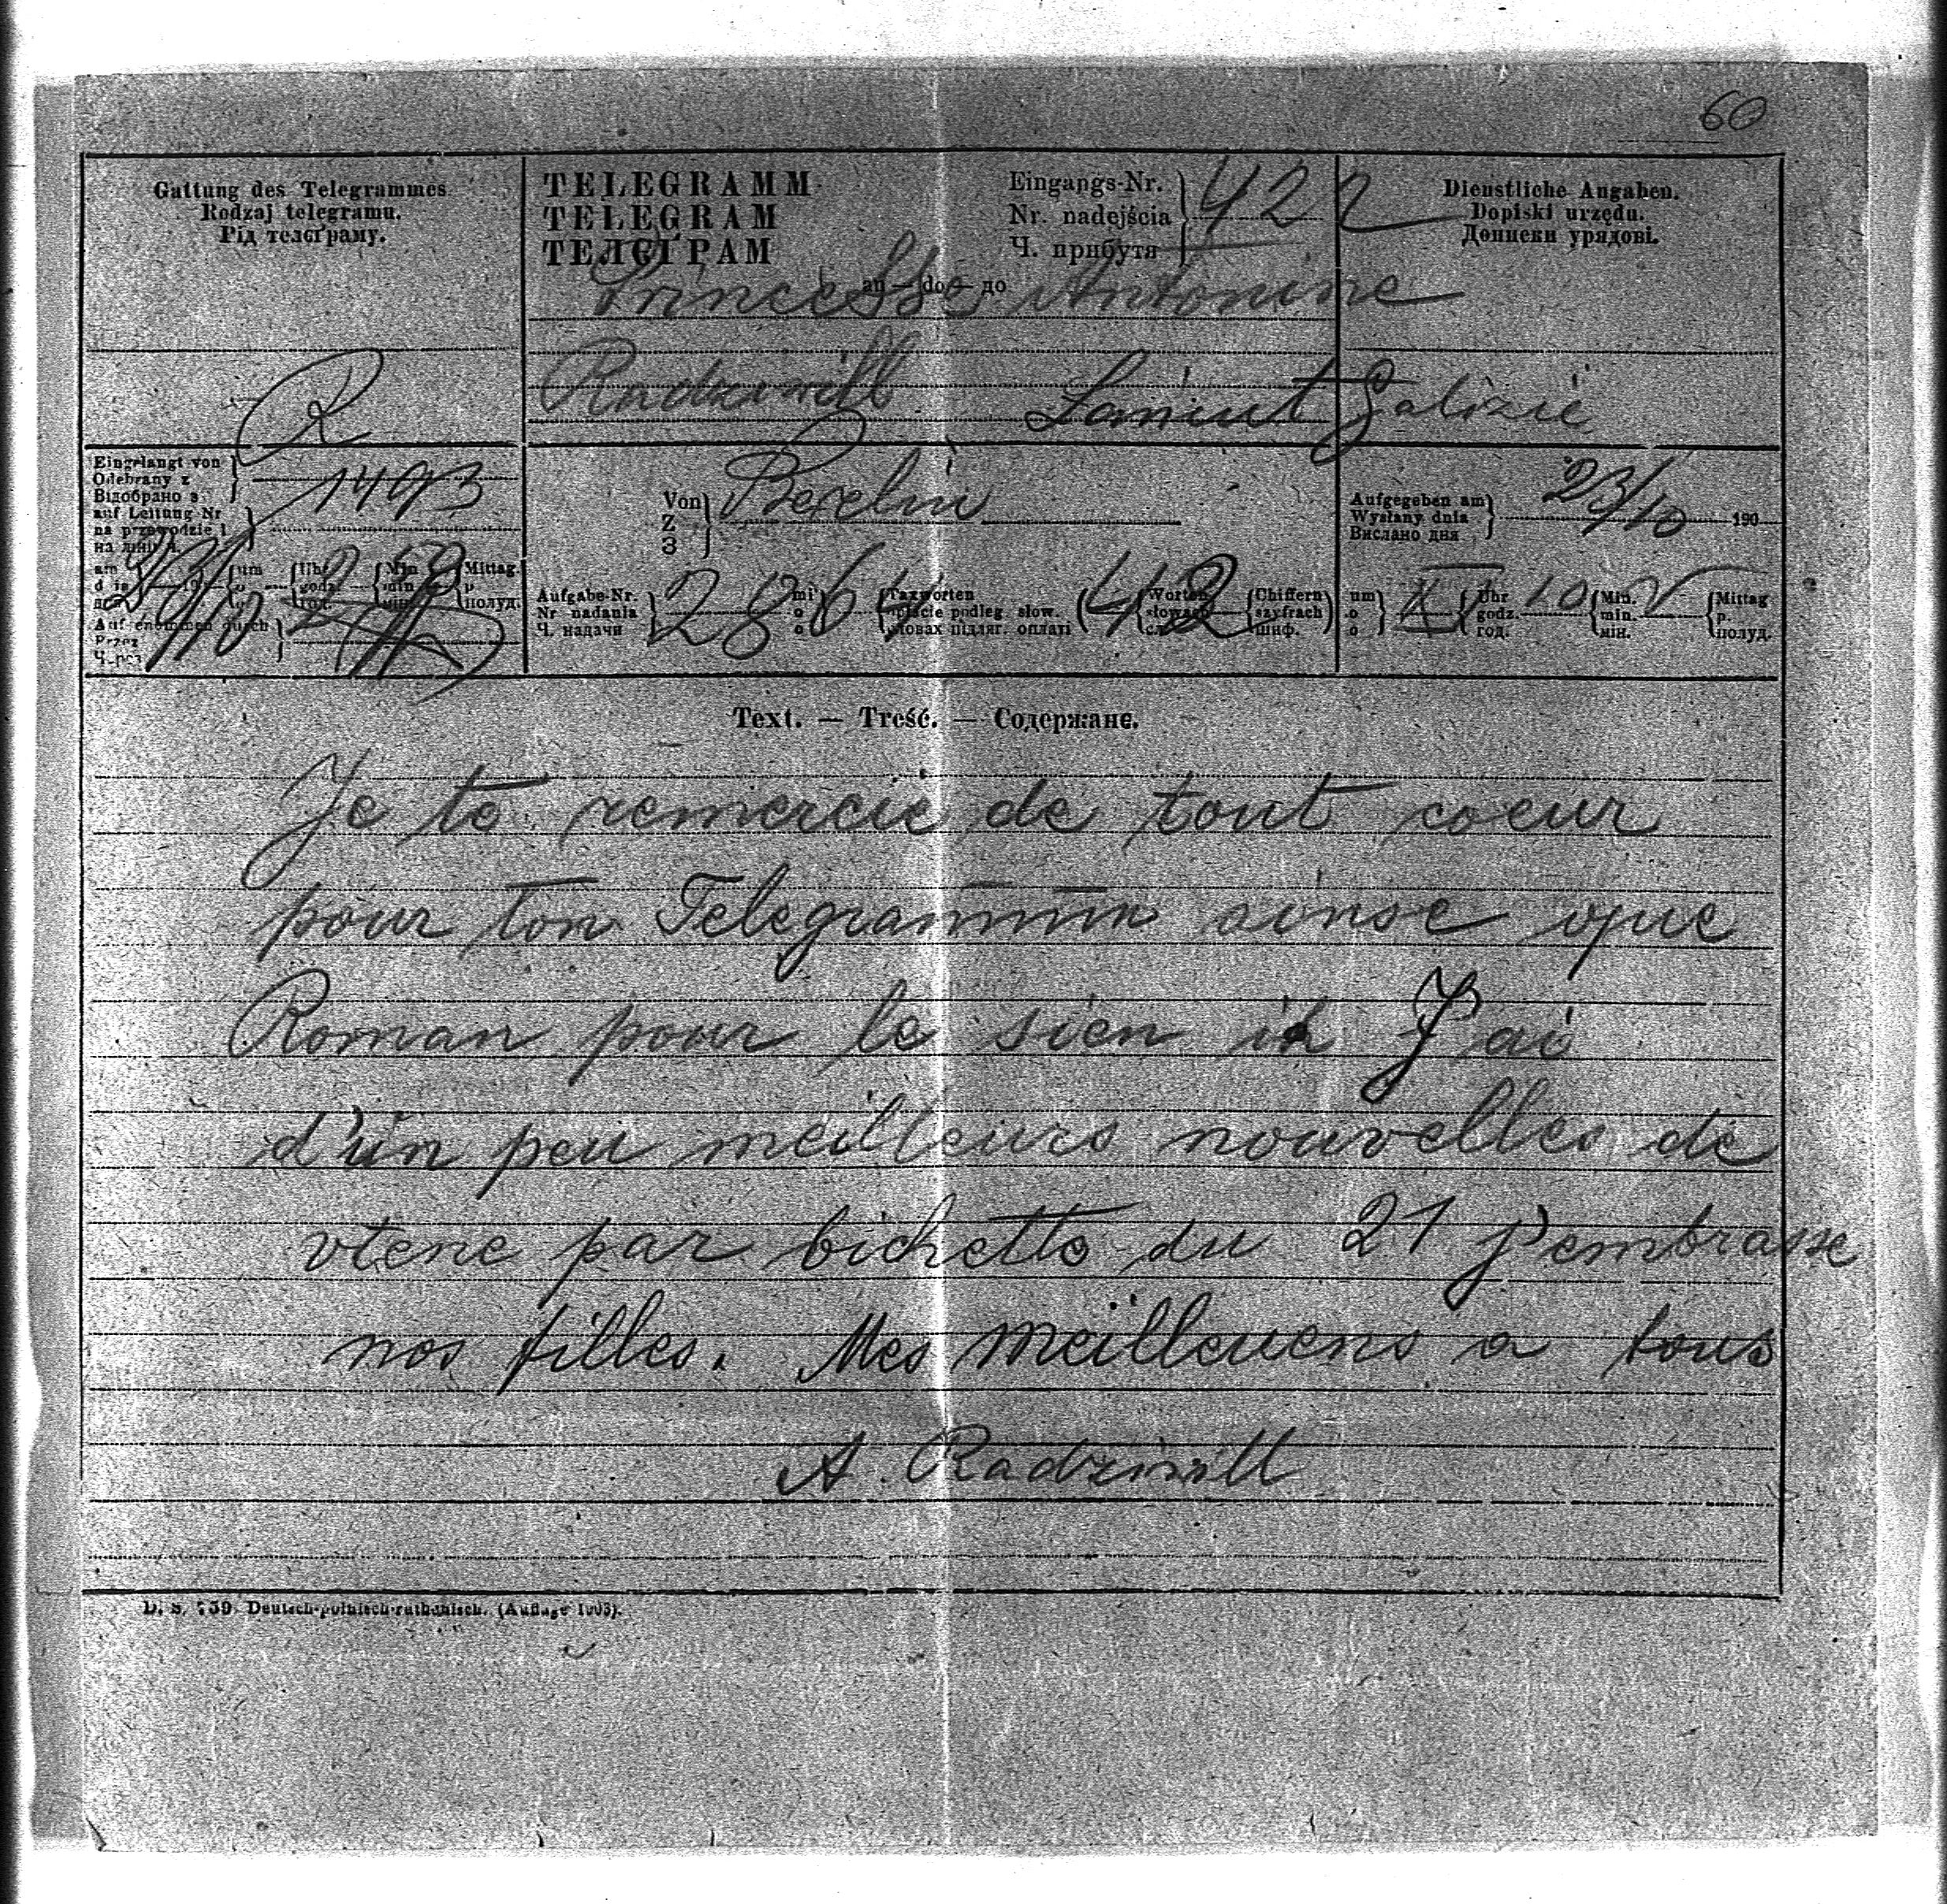 60
Gattung des Telegrammes.
Rodzaj telegramu.
Рід телєґраму.
TELEGRAMM
TELEGRAM
ТЕЛЄҐРАМ
Eingangs-Nr.
Nr. nadejścia
Ч. прибутя
422
Dienstliche Angaben.
Dopiski urzędu.
Дописки урядові.
an — do — до
Princesse Antonine
Radziwill Laniut Galizie
R
Eingelangt von
Odebrany z
Відобрано з
auf Leitung Nr
na przewodzie
1493
Von
Z
З
Berelin
Aufgegeben am
Wysłany dnia
Вислано дня
23/10 190
um
Uhr
godz.
год.
Min.
min.
мін.
Mittag
p.
полуд.
Aufgenommen durch
Przez
Через
Aufgabe-Nr.
Nr nadania
Ч. надачи
286
mi
o
o
Taxworten
opłacie podleg. słow.
словах підляг. оплаті
42
Worten
słowach
Chiffern
szyfrach
шиф.
um
o
o
Uhr
godz.
год.
10
Min.
min.
мін.
Mittag
p.
полуд.
Text. — Treść. — Содержанє.
Je te remercie de tout coeur
pour ton Telegramm ainse que
Roman pour le sien J'ai
d'un peu meilleurs nouvelles de
vtene par bichette du 21 j'embrasse
nos filles. Mes meilleuens a tous
A. Radziwill
D. S. 739 Deutsch-polnisch-ruthenisch. (Auflage 1903).